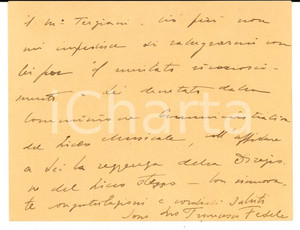 il m° Terziani. Ciò però non
mi impedisce di rallegrarmi con
lei per il meritato riconosci-
mento dei
Commissione Amministrativa
del Liceo Musicale, coll'affidare
a Lei la reggenza della Direzio-
ne del Liceo stesso - Con rinnova-
te congratulazioni e cordiali saluti
Suo Francesco Fedele
iCharta